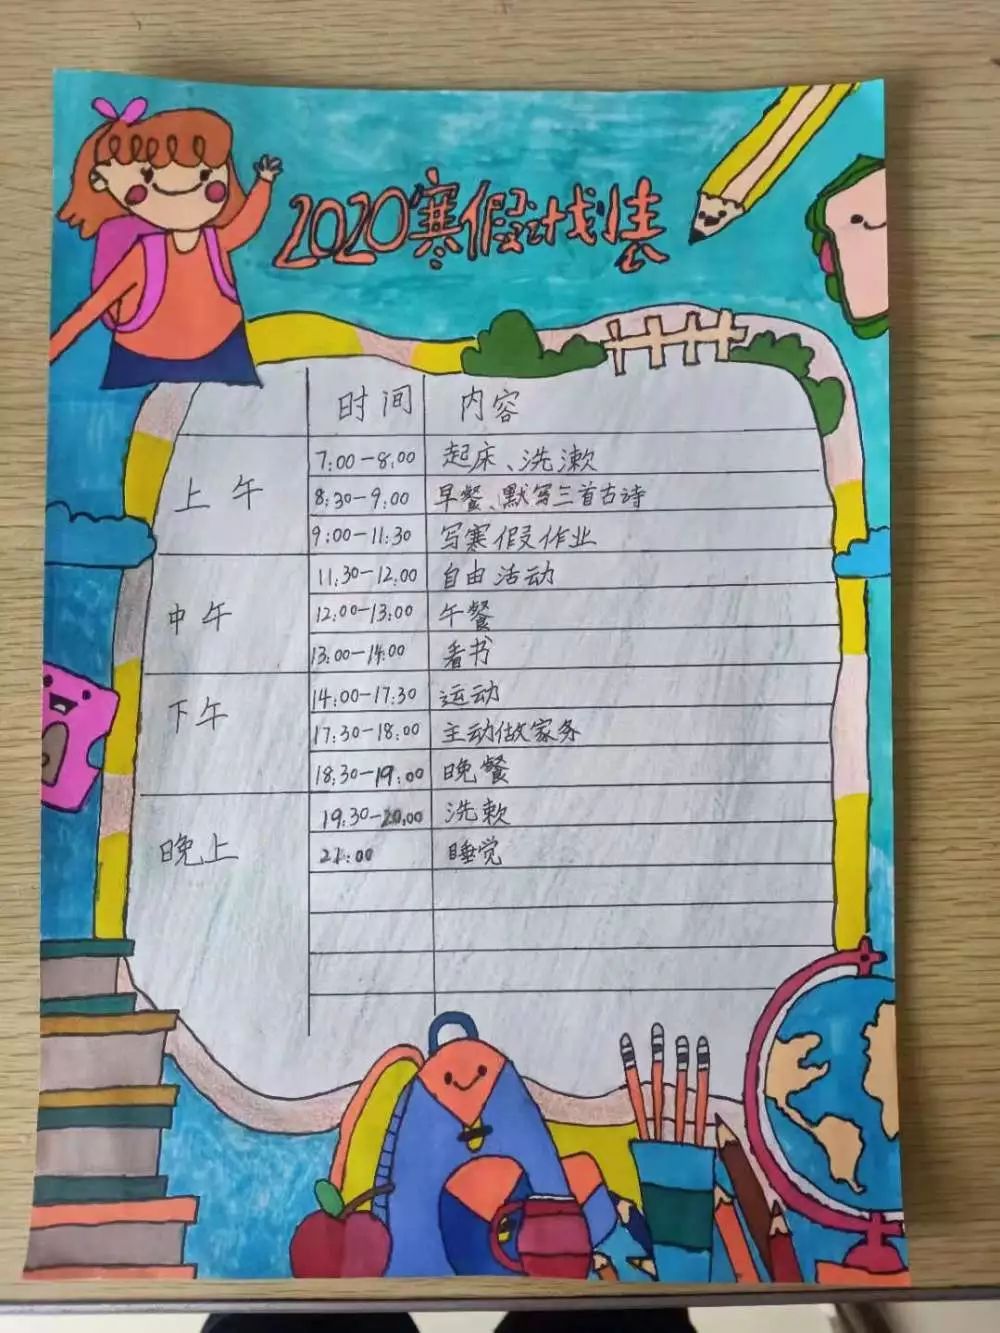 2020寒假计划表
时间 内容
上午
7:00-8:00 起床、洗漱
8:30-9:00 早餐、默写三首古诗
9:00-11:30 写寒假作业
中午
11:30-12:00 自由活动
12:00-13:00 午餐
13:00-14:00 看书
下午
14:00-17:30 运动
17:30-18:00 主动做家务
18:30-19:00 晚餐
晚上
19:30-20:00 洗漱
21:00 睡觉